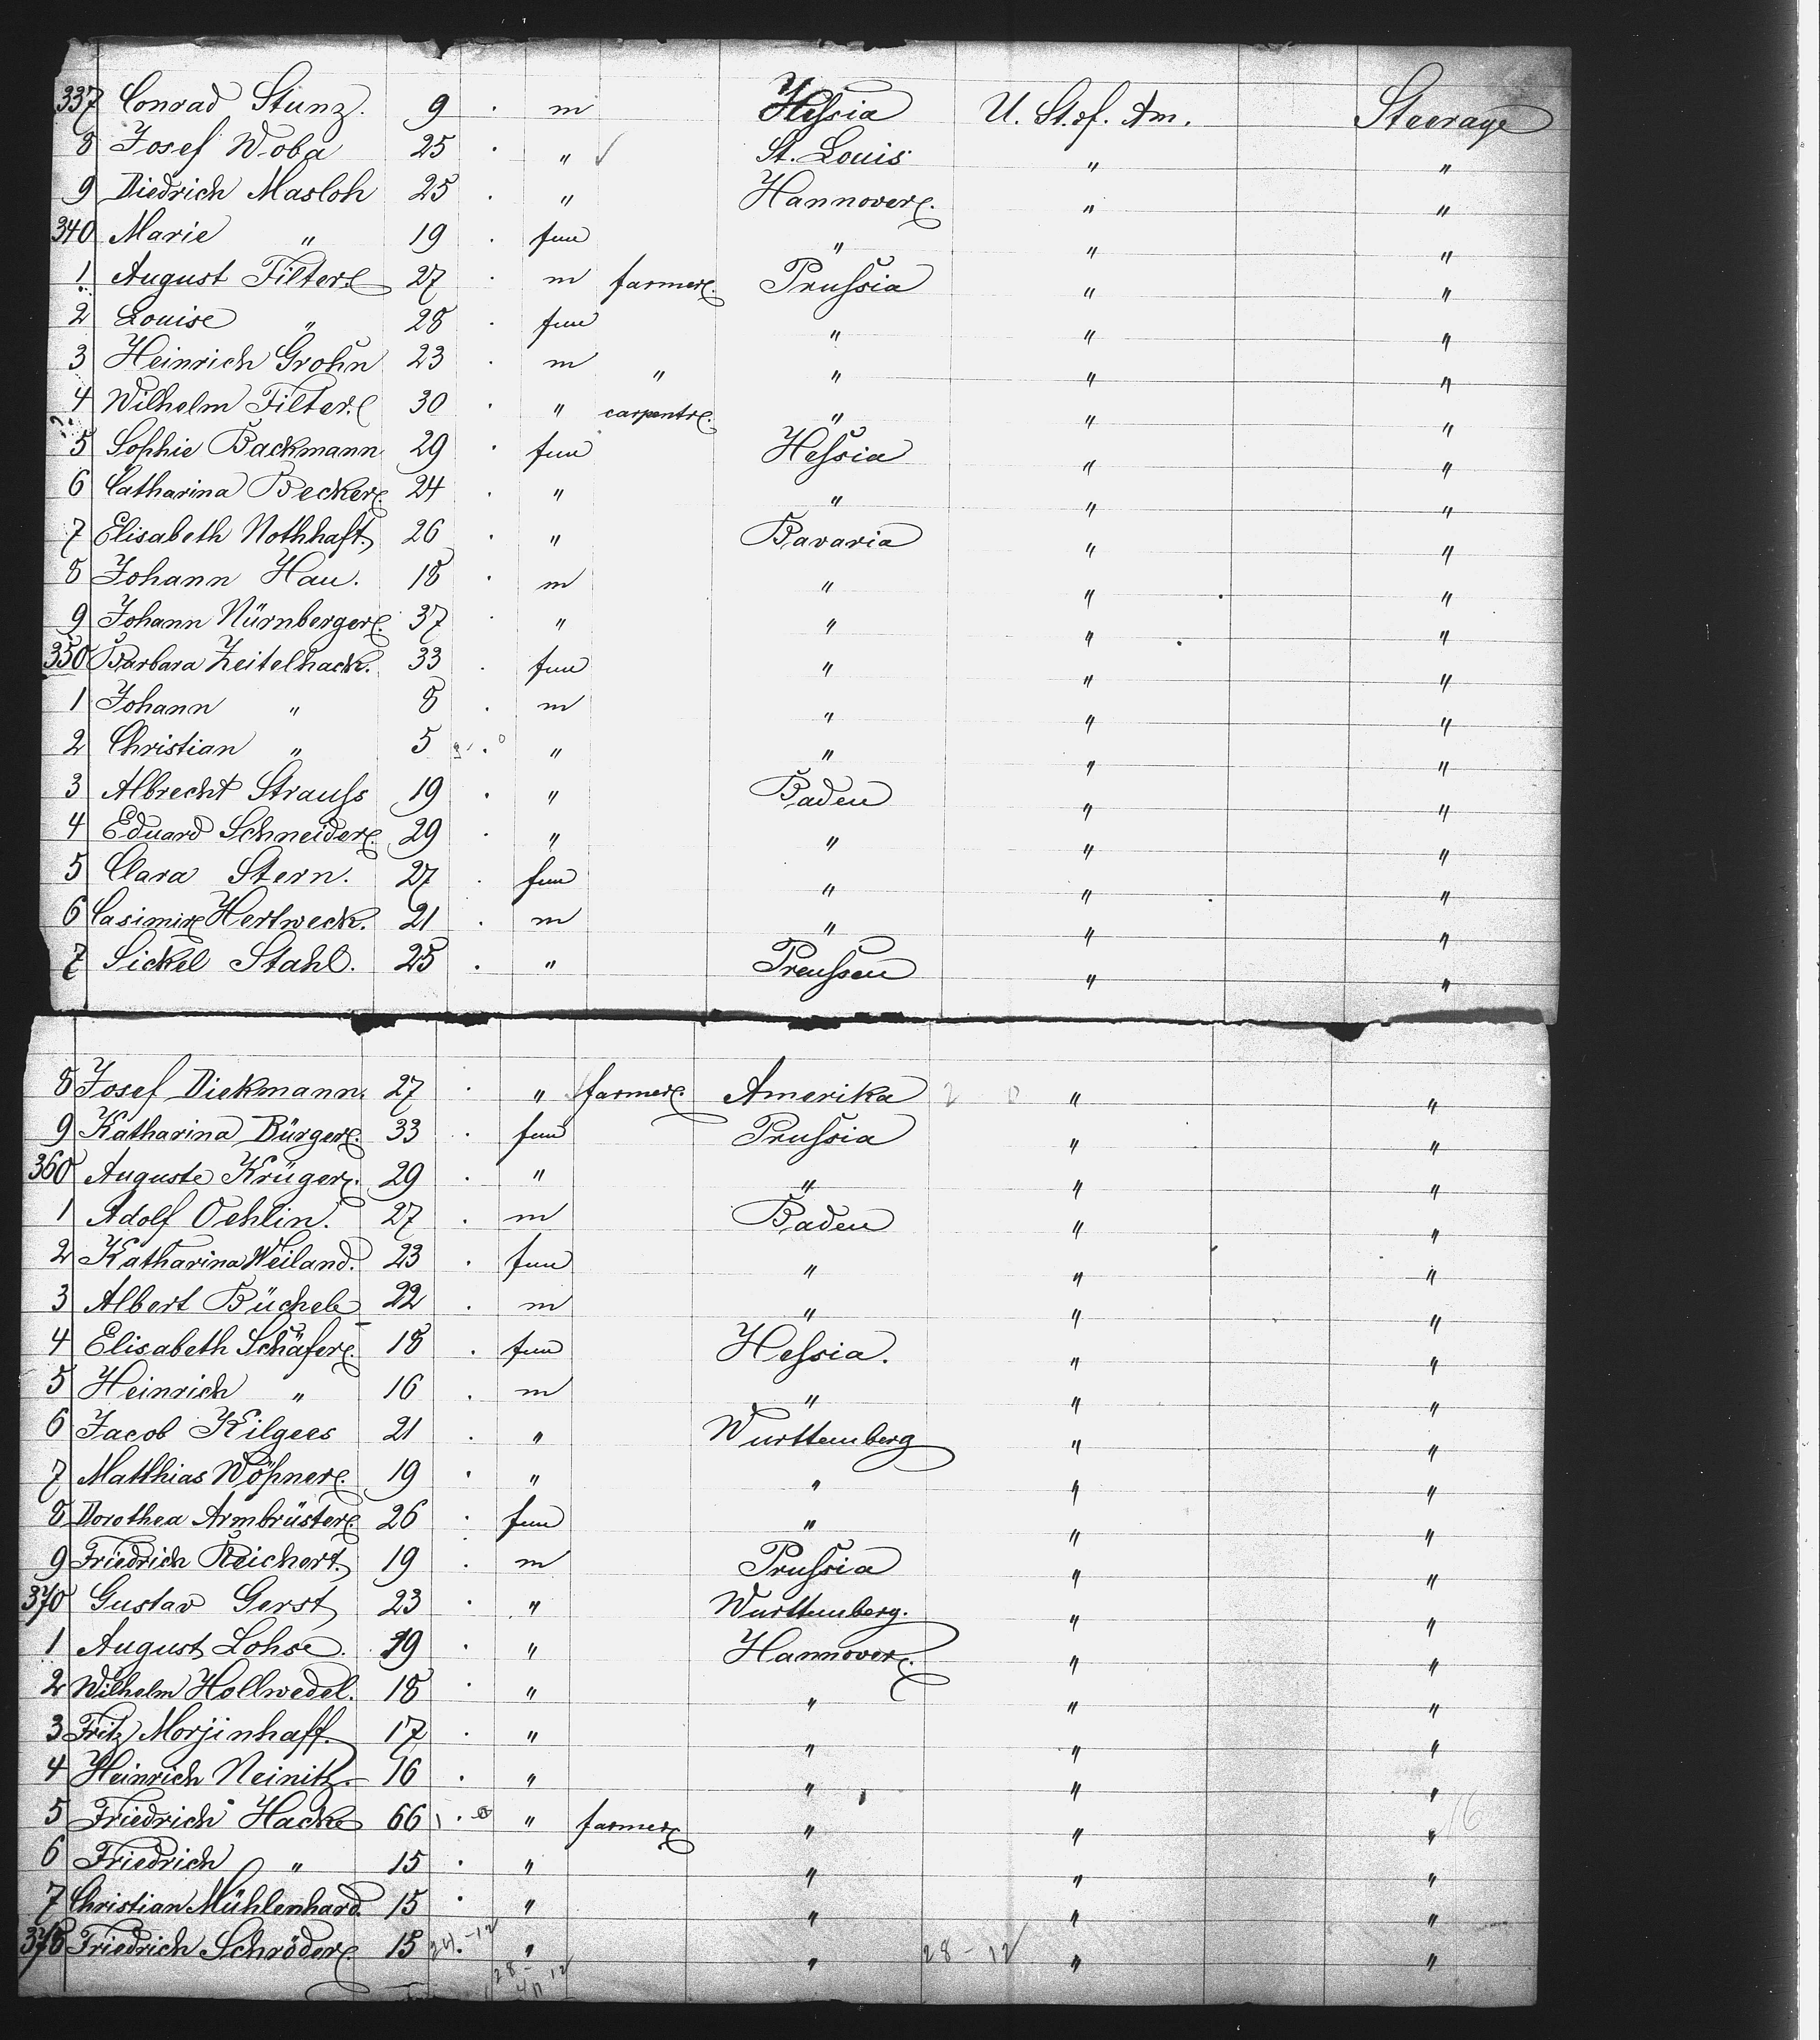 337 Conrad Stunz. 9 . m Hessia U. St. of. Am. Steerage
8 Josef Woba 25 . " ✓ St. Louis " "
9 Diedrich Masloh 25 . " Hannover. " "
340 Marie " 19 . fem " " "
1 August Filter 27 . m farmer. Prussia " "
2 Louise " 28 . fem " " "
3 Heinrich Grohn 23 . m " " " "
4 Wilhelm Filter 30 . " carpentr. " " "
5 Sophie Backmann 29 . fem Hessia " "
6 Catharina Becker. 24 . " " " "
7 Elisabeth Nothhaft. 26 . " Bavaria " "
8 Johann Hau. 18 . m " " "
9 Johann Nürnberger. 37 . " " " "
350 Barbara Zeitelhack. 33 . fem " " "
1 Johann " 8 . m " " "
2 Christian " 5 . " " " "
3 Albrecht Strauss 19 . " Baden " "
4 Eduard Schneider. 29 . " " " "
5 Clara Stern. 27 . fem " " "
6 Casimir Hertweck. 21 . m " " "
7 Sickel Stahl. 25 . " Preussen " "
8 Josef Diekmann. 27 . " farmer. Amerika " "
9 Katharina Bürger. 33 . fem Prussia " "
360 Auguste Krüger. 29 . " " " "
1 Adolf Oehlin. 27 . m Baden " "
2 Katharina Weiland. 23 . fem " " "
3 Albert Büchele 22 . m " " "
4 Elisabeth Schäfer. 18 . fem Hessia. " "
5 Heinrich " 16 . m " " "
6 Jacob Kilgees 21 . " Wurttemberg " "
7 Matthias Wößner. 19 . " " " "
8 Dorothea Armbrüster. 26 . fem " " "
9 Friedrich Reichert. 19 . m Prussia " "
370 Gustav Gerst 23 . " Wurttemberg. " "
1 August Lohse. 19 . " Hannover. " "
2 Wilhelm Hollwedel. 18 . " " " "
3 Fritz Morjinhaff. 17 . " " " "
4 Heinrich Neinitz. 16 . " " " "
5 Friedrich Hacke 66 . " farmer " " " 16
6 Friedrich " 15 . " " " "
7 Christian Mühlenhard. 15 . " " " "
378 Friedrich Schröder. 15 24.-12 " " 28-12 " "
28-